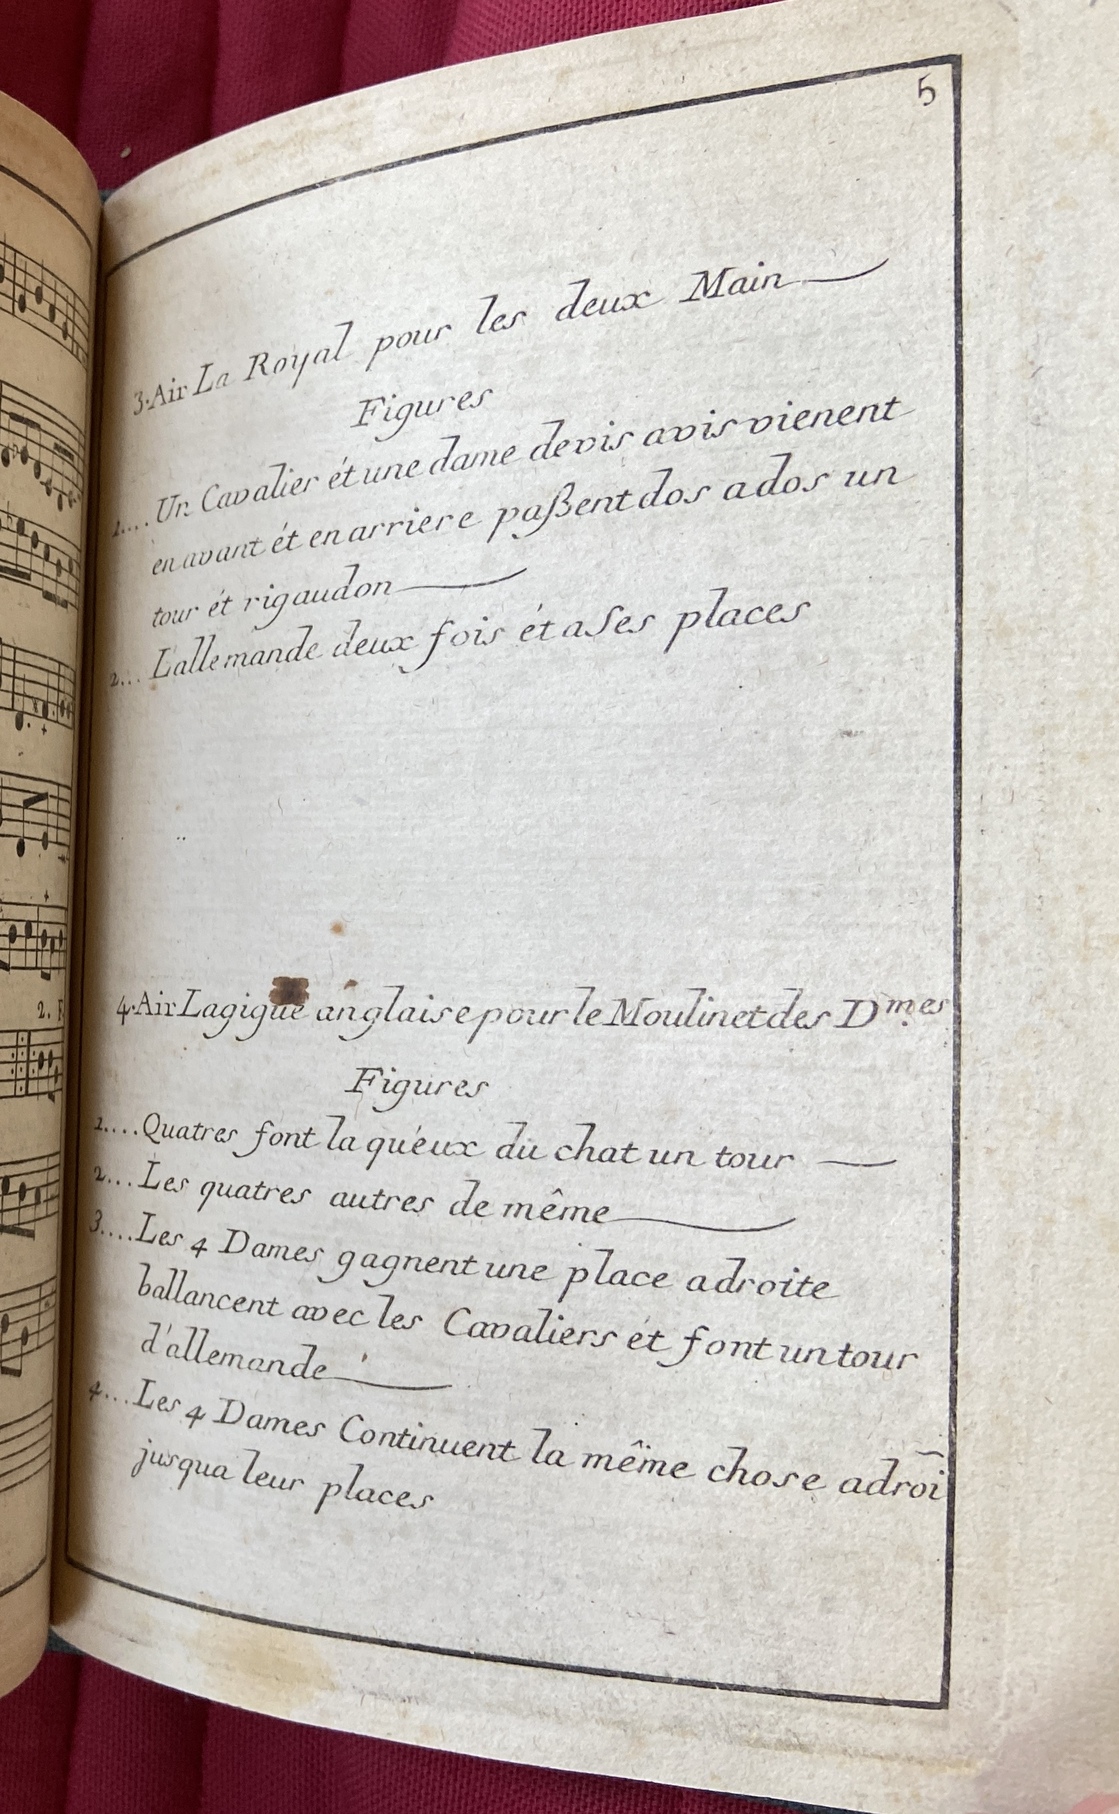 5
3. Air La Royal pour les deux Main
Figures
1.... Un Cavalier ét une dame devis avis vienent
en avant ét en arriere paßent dos a dos un
tour ét rigaudon
2... L'allemande deux fois ét a Ses places
4. Air La gigue anglaise pour le Moulinet des Dmes
Figures
1.... Quatres font la quéux du chat un tour
2... Les quatres autres de même
3.... Les 4 Dames gagnent une place adroite
ballancent avec les Cavaliers ét font un tour
d'allemande
4... Les 4 Dames Continuent la même chose adroi
jusqua leur places
2.